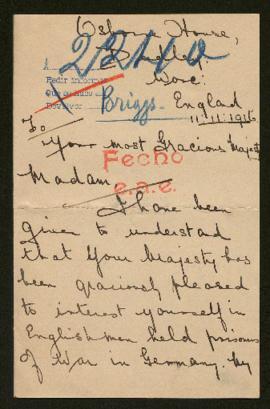 Osborne House,
Worc:
England
11.11.1916
28400
A
Pedir informes
Que se sabe
Devolver
Briggs
To
Your most Gracious Majesty
Fecho
e.a.e.
Madam
I have been
given to understand
that Your Majesty has
been graciously pleased
to interest yourself in
Englishmen held prisoners
of War in Germany. My